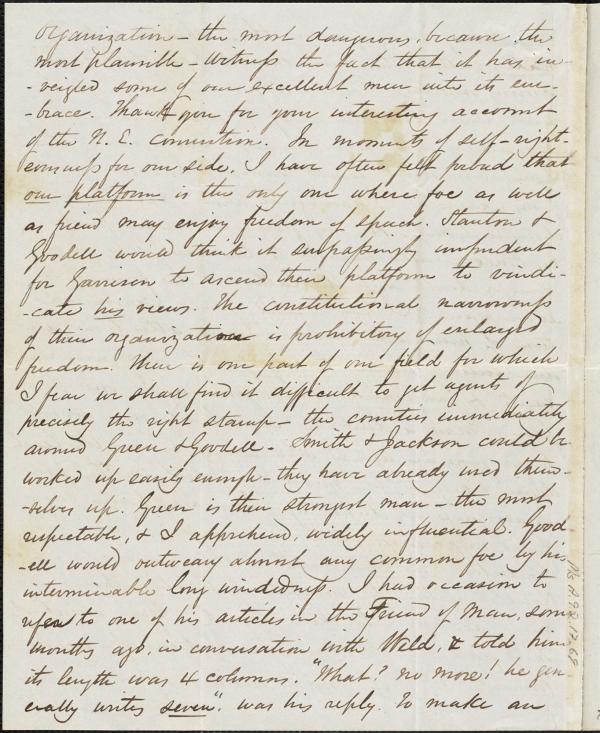 organization – the most dangerous, because, the
most plausible – Witness the fact that it has in-
-veigled some of our excellent men into its em-
-brace. Thank you for your interesting account
of the N. E. convention. In moments of self-right-
eousness for our side, I have often felt proud that
our platform is the only one where foe as well
as friend may enjoy freedom of speech. Stanton &
Goodell would think it surpassingly impudent
for Garrison to ascend their platform to vindi-
-cate his views. The constitutional narrowness
of their organization is prohibitory of enlarged
freedom. There is one part of our field for which
I fear we shall find it difficult to get agents of
precisely the right stamp – the counties immediately
around Green & Goodell. Smith & Jackson could be
worked up easily enough – they have already used them-
-selves up. Green is their strongest man – the most
respectable, & I apprehend, widely influential. Good-
-ell would outweary almost any common foe by his
interminable long windedness. I had occasion to
refer to one of his articles in the Friend of Man, some
months ago, in conversation with Weld, & told him
its length was 4 columns. "What? no more! he gen
erally writes seven", was his reply. To make an